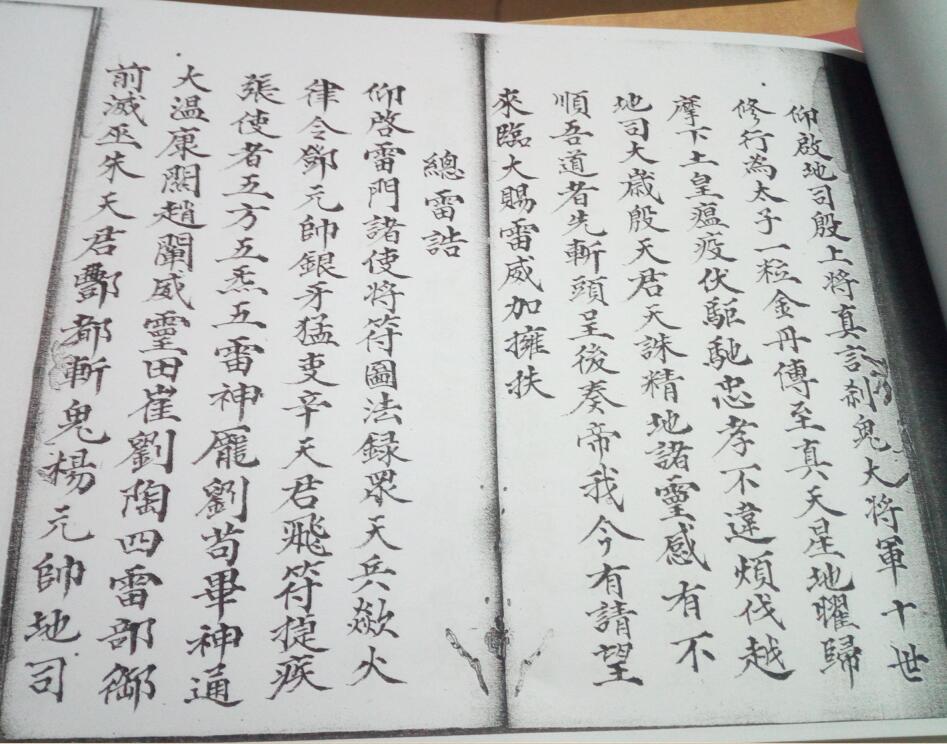 仰啟地司殷上將真言剎鬼大將軍十世
修行為太子一粒金丹傳至真天星地曜歸
摩下土皇瘟疫伏驅馳忠孝不違煩伐越
地司大歲殷天君天誅精地諸靈感有不
順吾道者先斬頭呈後奏帝我今有請望
來臨大賜雷威加擁扶
總雷誥
仰啓雷門諸使將符圖法録眾天兵歘火
律令鄧元帥銀牙猛吏辛天君飛符捉疾
張使者五方五炁五雷神龐劉苟畢神通
大温康關趙闡威靈田崔劉陶四雷部御
前滅巫朱天君酆都斬鬼楊元帥地司